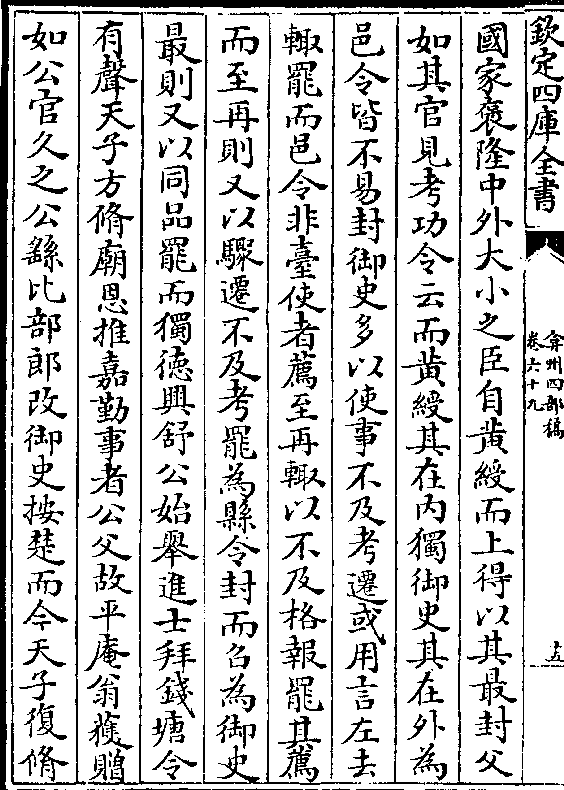 欽定四庫全書
弇州四部稿
卷六十九
十五
國家褒隆中外大小之臣自黄綬而上得以其最封父
如其官見考功令云而黄綬其在内獨御史其在外為
邑令皆不易封御史多以使事不及考遷或用言左去
輙罷而邑令非臺使者薦至再輙以不及格報罷其薦
而至再則又以驟遷不及考罷為縣令封而召為御史
最則又以同品罷而獨德興舒公始舉進士拜錢塘令
有聲天子方脩廟恩推嘉勤事者公父故平庵翁獲贈
如公官久之公繇比部郎改御史按楚而今天子復脩